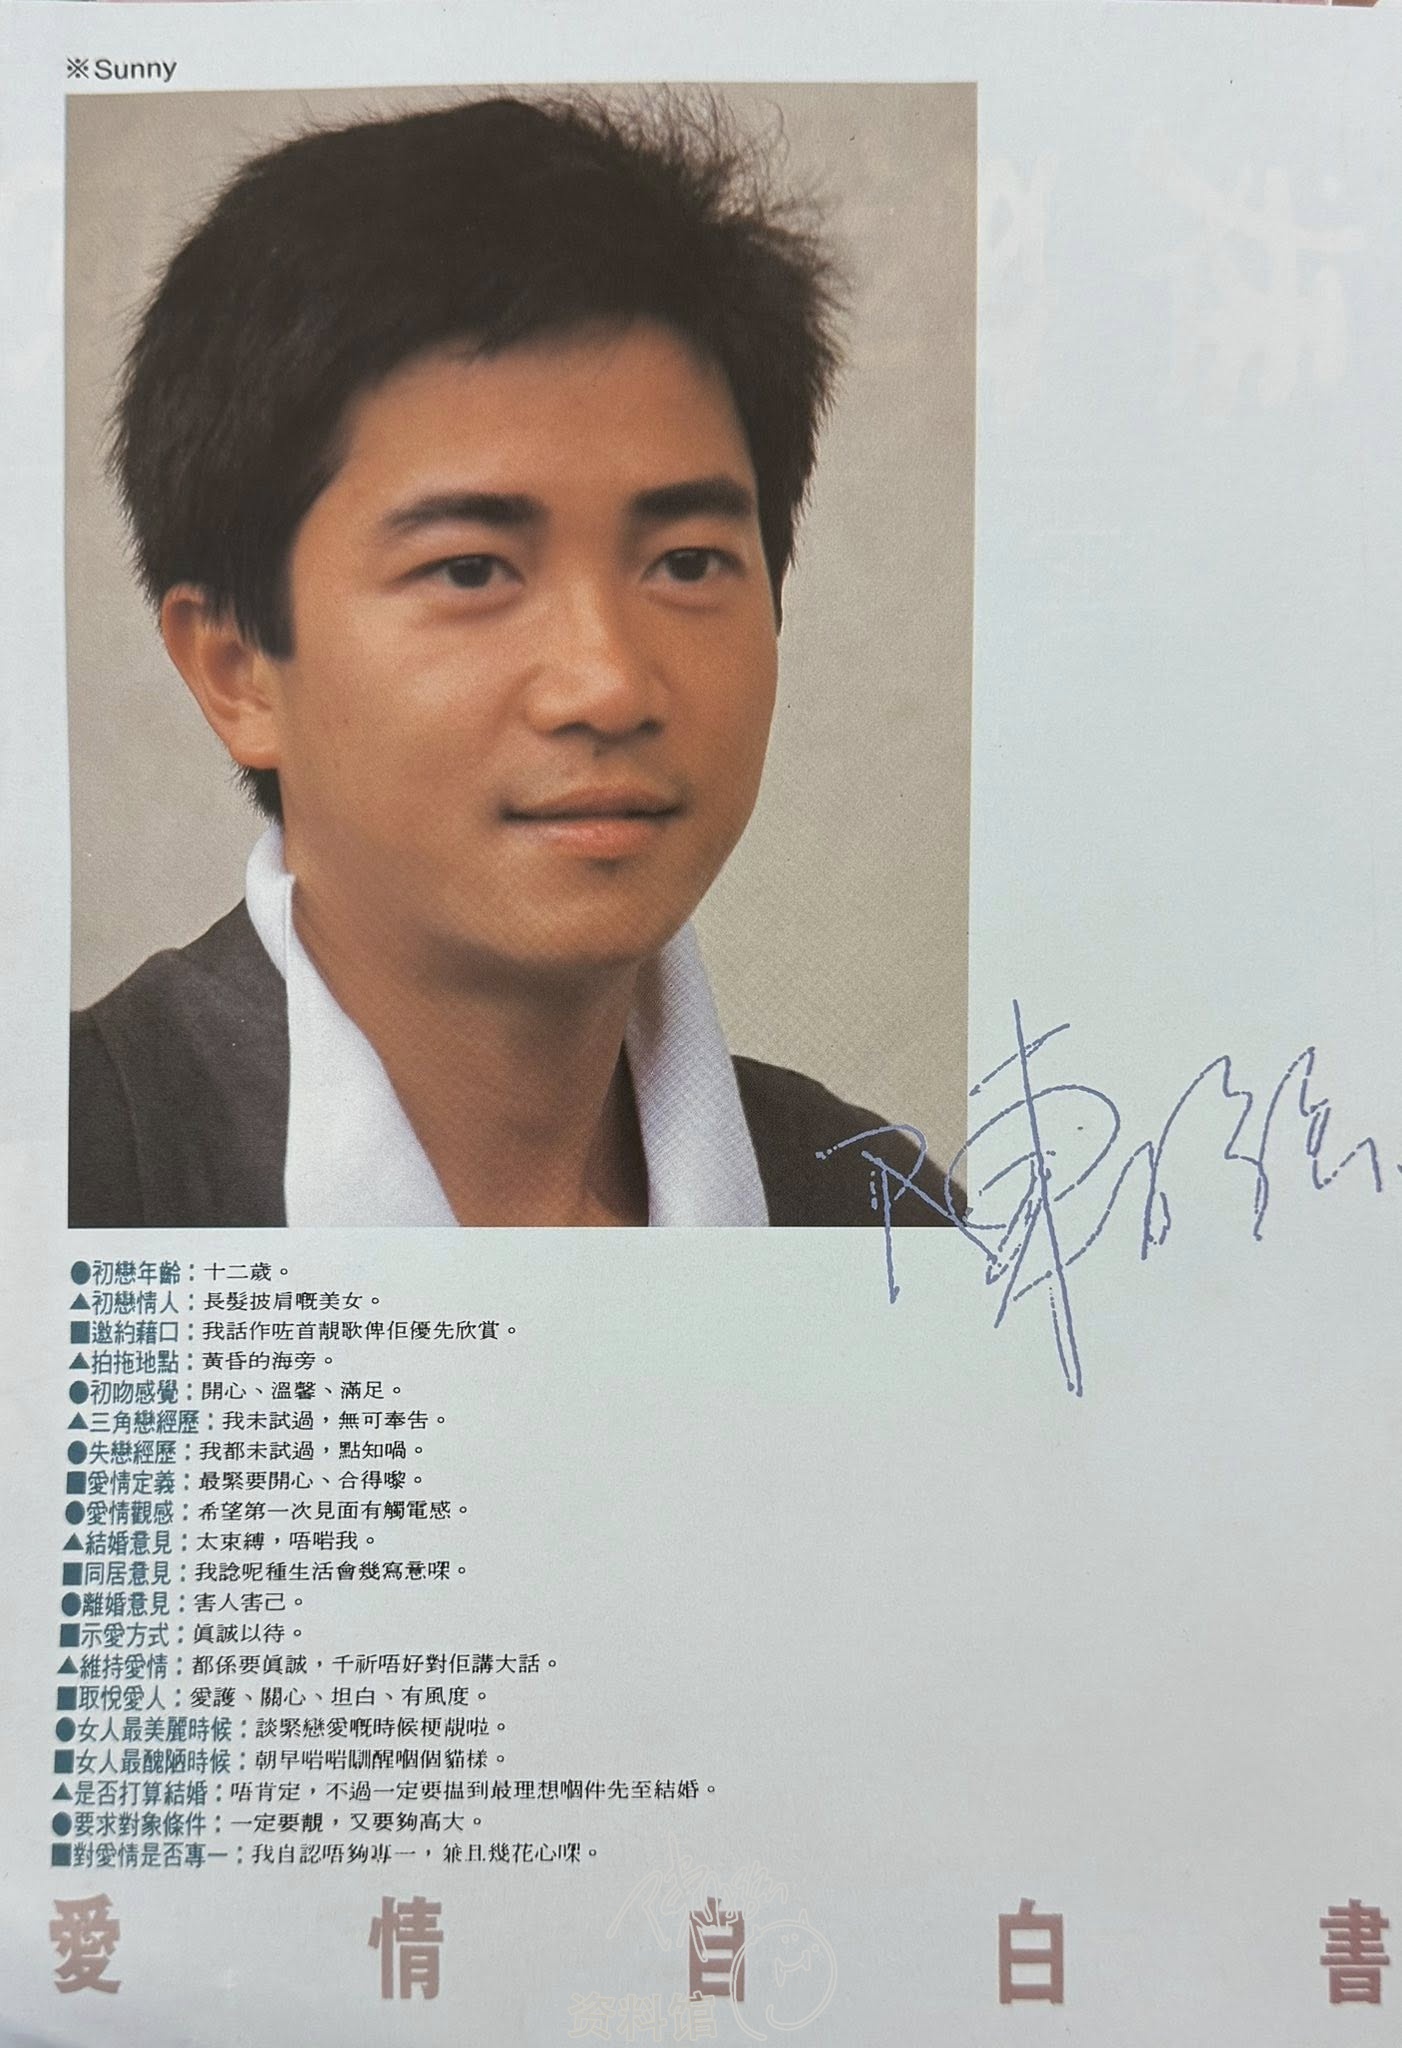 ※Sunny
●初戀年齡：十二歲。
▲初戀情人：長髮披肩嘅美女。
■邀約藉口：我話作咗首靚歌俾佢優先欣賞。
▲拍拖地點：黃昏的海旁。
●初吻感覺：開心、溫馨、滿足。
▲三角戀經歷：我未試過，無可奉告。
●失戀經歷：我都未試過，點知喎。
■愛情定義：最緊要開心、合得嚟。
●愛情觀感：希望第一次見面有觸電感。
▲結婚意見：太束縛，唔啱我。
■同居意見：我諗呢種生活會幾寫意㗎。
●離婚意見：害人害己。
■示愛方式：眞誠以待。
▲維持愛情：都係要眞誠，千祈唔好對佢講大話。
■取悅愛人：愛護、關心、坦白、有風度。
●女人最美麗時候：談緊戀愛嘅時候梗靚啦。
■女人最醜陋時候：朝早啱啱瞓醒嗰個貓樣。
▲是否打算結婚：唔肯定，不過一定要揾到最理想嗰件先至結婚。
●要求對象條件：一定要靚，又要夠高大。
■對愛情是否專一：我自認唔夠專一，兼且幾花心㗎。
愛情自白書
资料馆